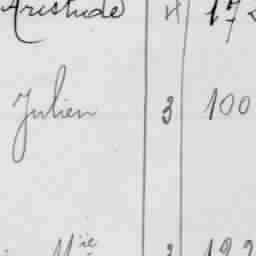 Aristide 4 17
Julien 3 100
Mie 3 122